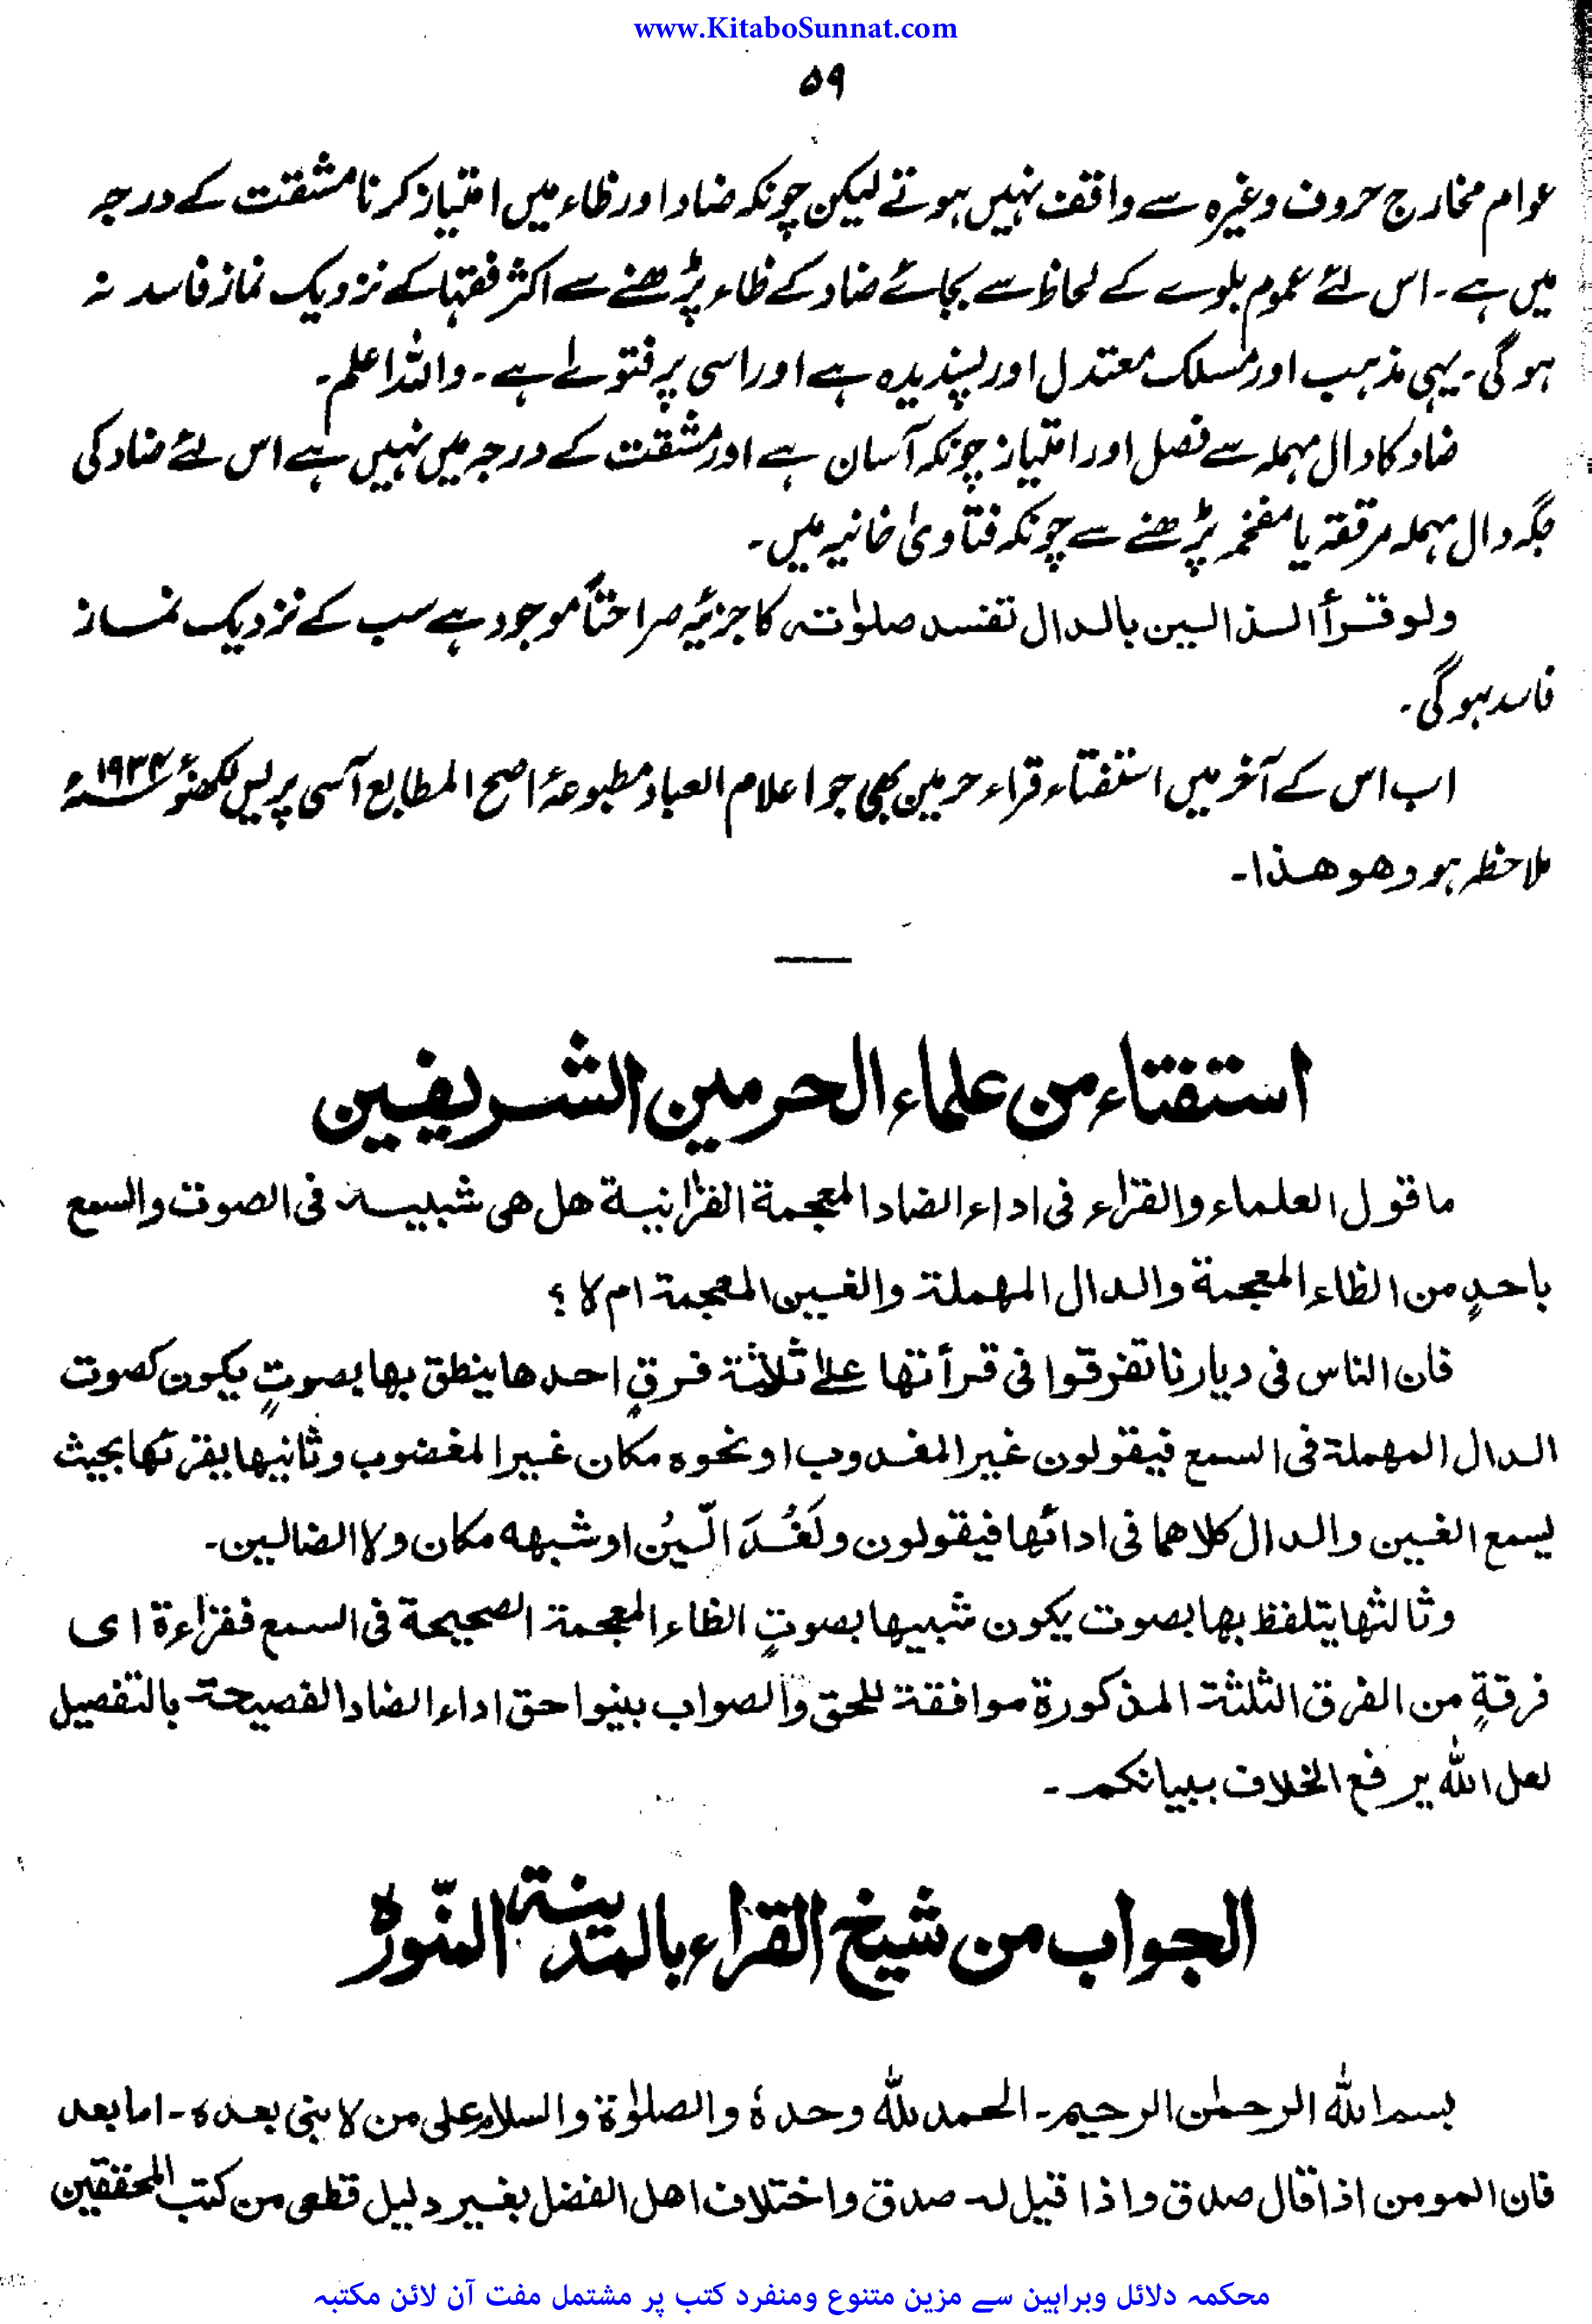 www.KitaboSunnat.com
۵۹
عوام مخارج حروف وغیرہ سے واقف نہیں ہوتے لیکن چونکہ ضاد اور ظاء میں امتیاز کرنا مشقت کے درجہ
میں ہے۔ اس لئے عموم بلوے کے لحاظ سے بجائے ضاد کے ظاء پڑھنے سے اکثر فقہا کے نزدیک نماز فاسد نہ
ہوگی۔ یہی مذہب اور مسلک معتدل اور پسندیدہ ہے اور اسی پر فتوےٰ ہے۔ واللہ اعلم۔
ضاد کا دال مہملہ سے فصل اور امتیاز چونکہ آسان ہے اور مشقت کے درجہ میں نہیں ہے اس لئے ضاد کی
جگہ دال مہملہ مرققہ یا مفخمہ پڑھنے سے چونکہ فتاویٰ خانیہ میں۔
ولو قرأ الذالین بالدال تفسد صلوٰتہ کا جزئیہ صراحتاً موجود ہے سب کے نزدیک نماز
فاسد ہوگی۔
اب اس کے آخر میں استفتاء قراء حرمین بھی جو اعلام العباد مطبوعۂ اصح المطابع آسی پریس لکھنؤ ۱۹۳۴ء
ملاحظہ ہو وھو ھذا۔
استفتاء من علماء الحرمین الشریفین
ما قول العلماء والقراء فی اداء الضاد المعجمة القرانیة هل هی شبیهة فی الصوت والسمع
باحدٍ من الظاء المعجمة والدال المهملة والغین المعجمة ام لا؟
فان الناس فی دیارنا تفرقوا فی قرأتها علےٰ ثلاثة فرقٍ احدها ینطق بها بصوتٍ یکون کصوت
الدال المهملة فی السمع فیقولون غیر المغدوب او نحوه مکان غیر المغضوب وثانیها یقرئها بحیث
یسمع الغین والدال کلاهما فی ادائها فیقولون ولَغُدَ الّیُن او شبهه مکان ولا الضالین۔
وثالثها یتلفظ بها بصوت یکون شبیها بصوتٍ الظاء المعجمة الصحیحة فی السمع فقراءة ای
فرقةٍ من الفرق الثلثة المذکورة موافقة للحق والصواب بینوا حق اداء الضاد الفصیحة بالتفصیل
لعل الله یرفع الخلاف ببیانکم۔
الجواب من شیخ القراء بالمدینة المنّورة
بسم الله الرحمٰن الرحیم۔ الحمد لله وحدهٗ والصلوٰة والسلام علی من لا نبی بعده۔ اما بعد
فان المومن اذا قال صدق واذا قیل له صدق واختلاف اهل الفضل بغیر دلیل قطعی من کتب المحققین
محکمہ دلائل وبراہین سے مزین متنوع ومنفرد کتب پر مشتمل مفت آن لائن مکتبہ